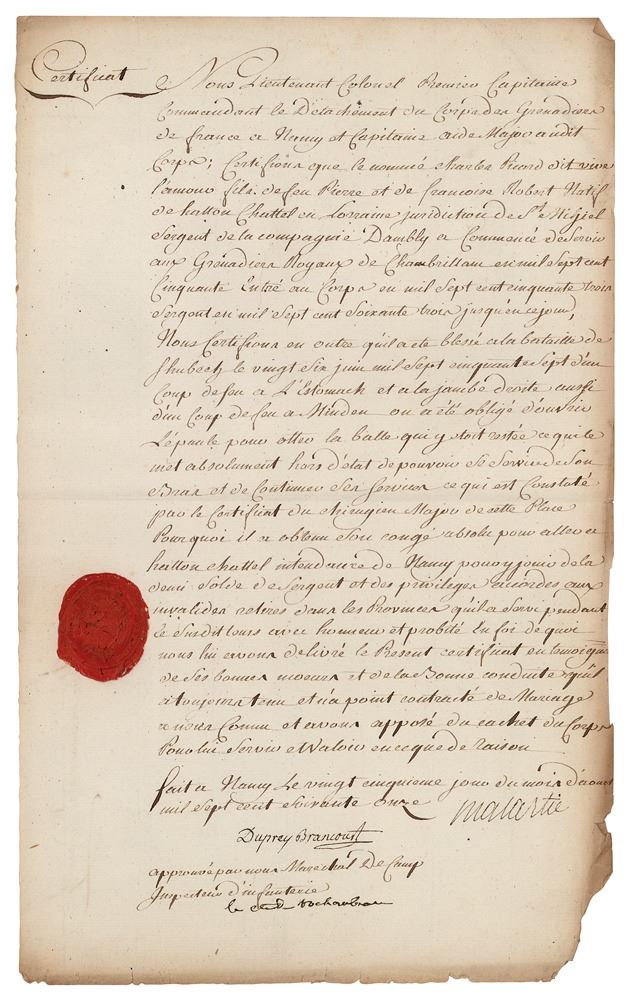 Certificat
Nous Lieutenant Colonel Premier Capitaine
Commandant le Détachement du Corps des Grenadiers
de france a Nancy et Capitaine aide Major audit
Corps; Certifions que le nommé Charles Picard dit vive
l'amour fils de feu Pierre et de francoise Robert Natif
de hatton Chattel en Lorraine juridiction de St Mihiel
Sergent de la compagnie Dambly a Commencé de Servir
aux Grenadiers Royaux de Chambrillant en mil sept cent
Cinquante Entré au Corps en mil Sept cent cinquante trois
Sergent en mil Sept cent Soixante trois jusqu'en ce jour,
Nous Certifions en outre qu'il a ete blessé a la bataille de
le vingt Six juin mil Sept cinquante Sept d'un
Coup de feu a L'Estomach et a la jambe droite aussi
d'un Coup de feu a Minden ou a été obligé d'ouvrir
L'épaule pour otter la balle qui y etoit restée ce qui le
met absolument hors d'état de pouvoir Se Servir de Son
Bras et de Continuer Ses Services ce qui est Constaté
par le Certificat du chirugien Major de cette Place
Pourquoi il a obtenu Son congé absolu pour aller a
hatton chattel intendance de Nancy pour y jouir de la
demi Solde de Sergent et des privileges accordés aux
invalides retirés dans les Provinces qu'il a Servi pendant
le Susdit tems avec honneur et probité En foi de quoi
nous lui avons délivré le Present certificat en temoignage
de Ses bonnes moeurs et de la Bonne conduite qu'il
a toujours tenu et n'a point contracté de Mariage
a nous Connu et avons apposé du cachet du Corps
Pour lui Servir et Valoir en ce que de raison
fait a Nancy Le vingt cinquieme jour du mois d'aoust
mil Sept cent Soixante Onze
Malartic
Duprey Brancourt
approuvé par nous Maréchal De Camp
Inspecteur d'infanterie
le cte de rochambeau